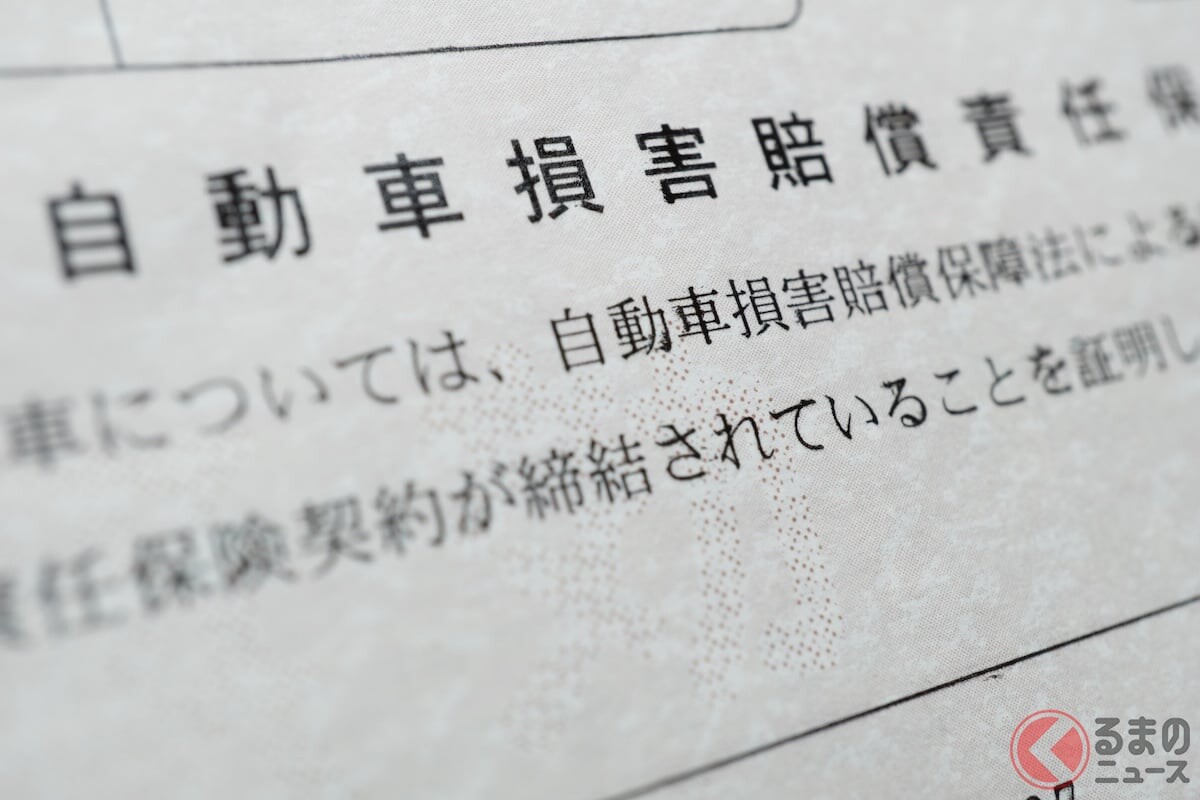 自動車損害賠償責任保
車については、自動車損害賠償保障法による
責任保険契約が締結されていることを証明し
くるまの
ニュース